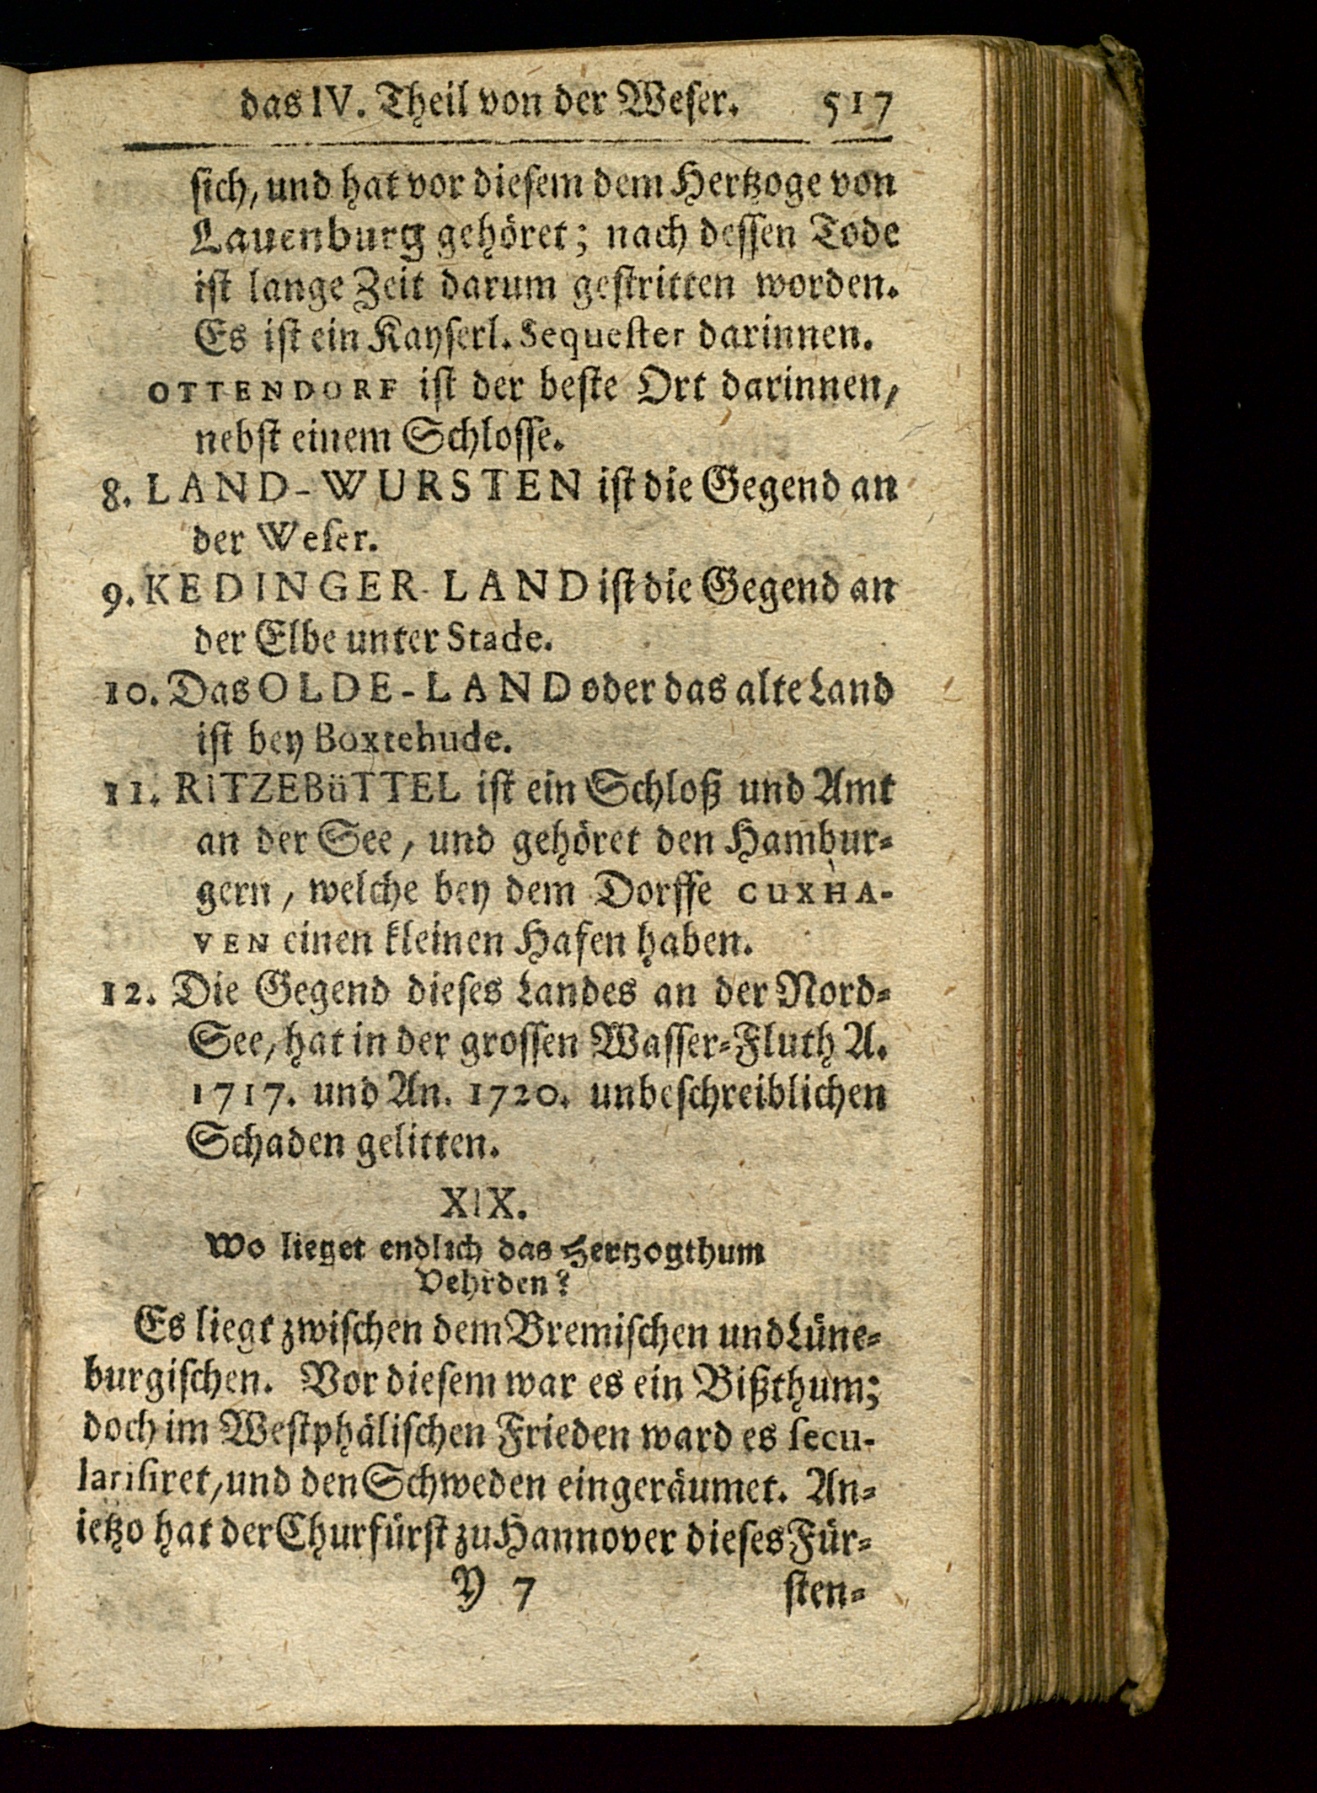 das IV. Theil von der Weser. 517
sich, und hat vor diesem dem Hertzoge von
Lauenburg gehöret; nach dessen Tode
ist lange Zeit darum gestritten worden.
Es ist ein Kayserl. Sequester darinnen.
OTTENDORF ist der beste Ort darinnen,
nebst einem Schlosse.
8. LAND-WURSTEN ist die Gegend an
der Weser.
9. KEDINGER-LAND ist die Gegend an
der Elbe unter Stade.
10. Das OLDE-LAND oder das alte Land
ist bey Boxtehude.
11. RITZEBüTTEL ist ein Schloß und Amt
an der See, und gehöret den Hambur-
gern, welche bey dem Dorffe CUXHA-
VEN einen kleinen Hafen haben.
12. Die Gegend dieses Landes an der Nord-
See, hat in der grossen Wasser-Fluth A.
1717. und An. 1720. unbeschreiblichen
Schaden gelitten.
XIX.
Wo lieget endlich das Hertzogthum
Vehrden?
Es liegt zwischen dem Bremischen und Lüne-
burgischen. Vor diesem war es ein Bißthum;
doch im Westphälischen Frieden ward es secu-
larisiret, und den Schweden eingeräumet. An-
ietzo hat der Churfürst zu Hannover dieses Für-
Y 7 sten-